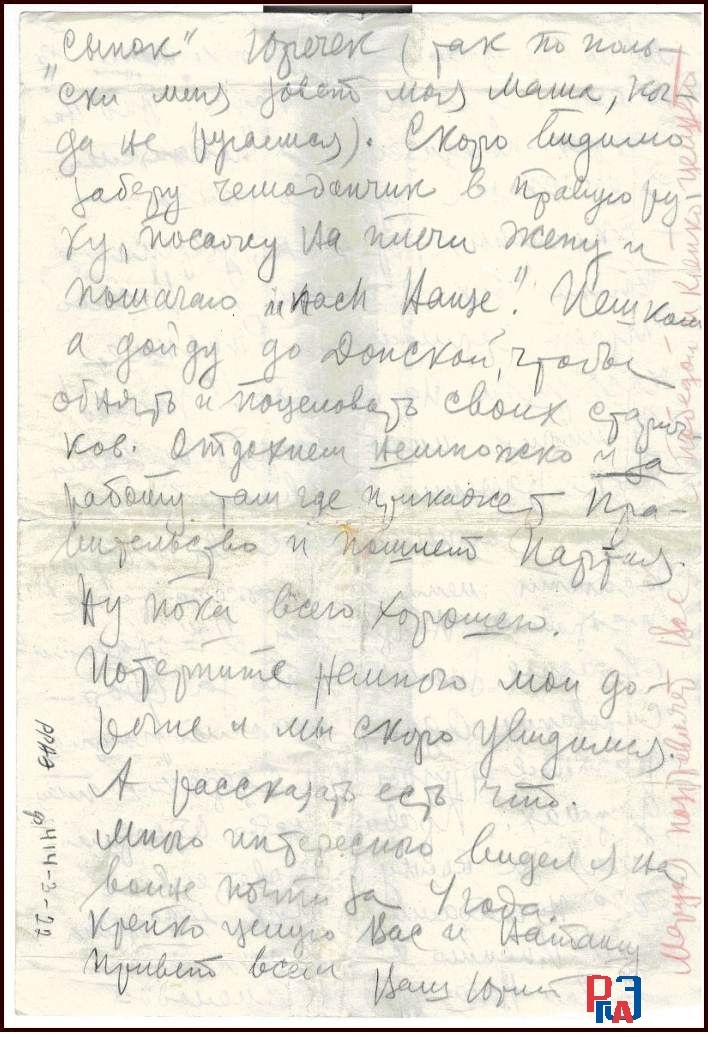 "сынок" Юречек (так по поль-
ски меня зовет моя Маша, ког-
да не ругаемся). Скоро видимо
заберу чемоданчик в правую ру-
ку, посажу на плечи жену и
пошагаю "нах Наизе". Пешком
а дойду до Донской, чтобы
обнять и поцеловать своих старич-
ков. Отдохнем немножко и за
работу там где прикажет Пра-
вительство и пошлет Партия.
Ну пока всего хорошего.
Потерпите немного мои до-
рогие и мы скоро увидимся.
А рассказать есть что.
Много интересного видел я на
войне почти за 4 года.
Крепко целую Вас и Наташу
Привет всем Ваш Юрий
Маруся поздравляет Вас с победой и крепко целует
РГАЭ
ф 414-3-22
РГАЭ